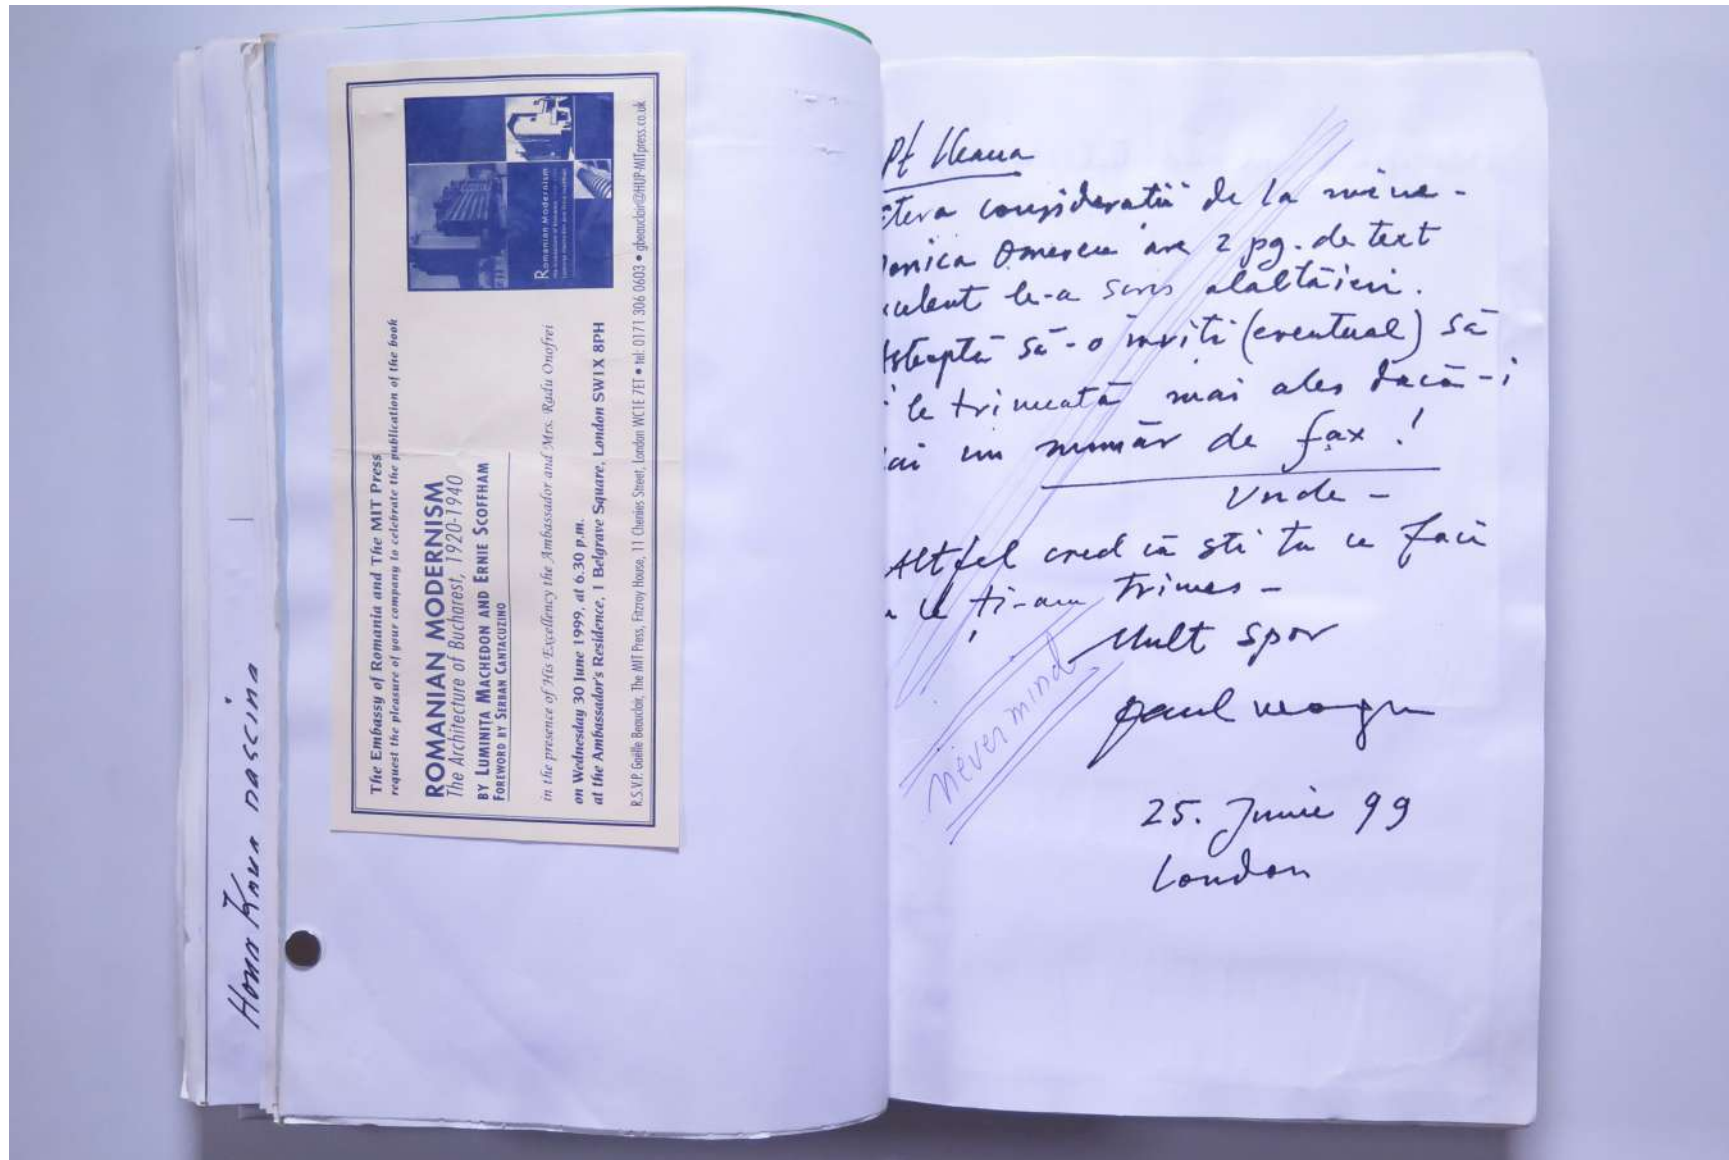 The Embassy of Romania and The MIT Press
request the pleasure of your company to celebrate the publication of the book
ROMANIAN MODERNISM
The Architecture of Bucharest, 1920-1940
BY LUMINITA MACHEDON AND ERNIE SCOFFHAM
FOREWORD BY SERBAN CANTACUZINO
in the presence of His Excellency the Ambassador and Mrs. Radu Onofrei
on Wednesday 30 June 1999, at 6.30 p.m.
at the Ambassador's Residence, 1 Belgrave Square, London SW1X 8PH
R.S.V.P. Gaëlle Beauclair, The MIT Press, Fitzroy House, 11 Chenies Street, London WC1E 7ET • tel: 0171 306 0603 • gbeauclair@HUP-MITpress.co.uk
Romanian Modernism
Pt Ileana
consideratii de la mine -
are 2 pg. de text
le-a scris alaltăieri.
să-o inviti (eventual) să
le trimeată mai ales dacă-i
un număr de fax!
Unde -
Altfel cred că sti tu ce faci
ce ți-am trimes -
Mult spor
paul neagu
never mind
25. Junie 99
London